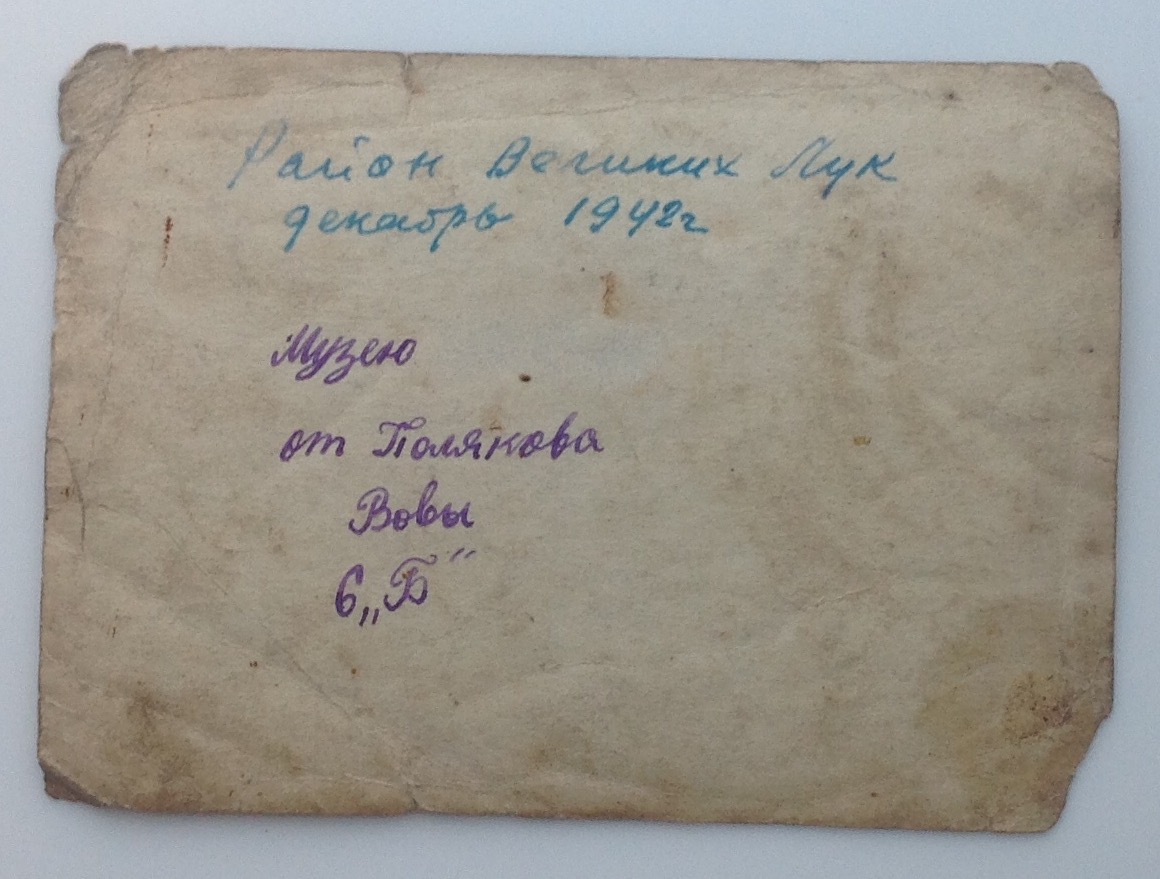 Район Великих Лук
декабрь 1942г
Музею
от Полякова
Вовы
6 „Б"